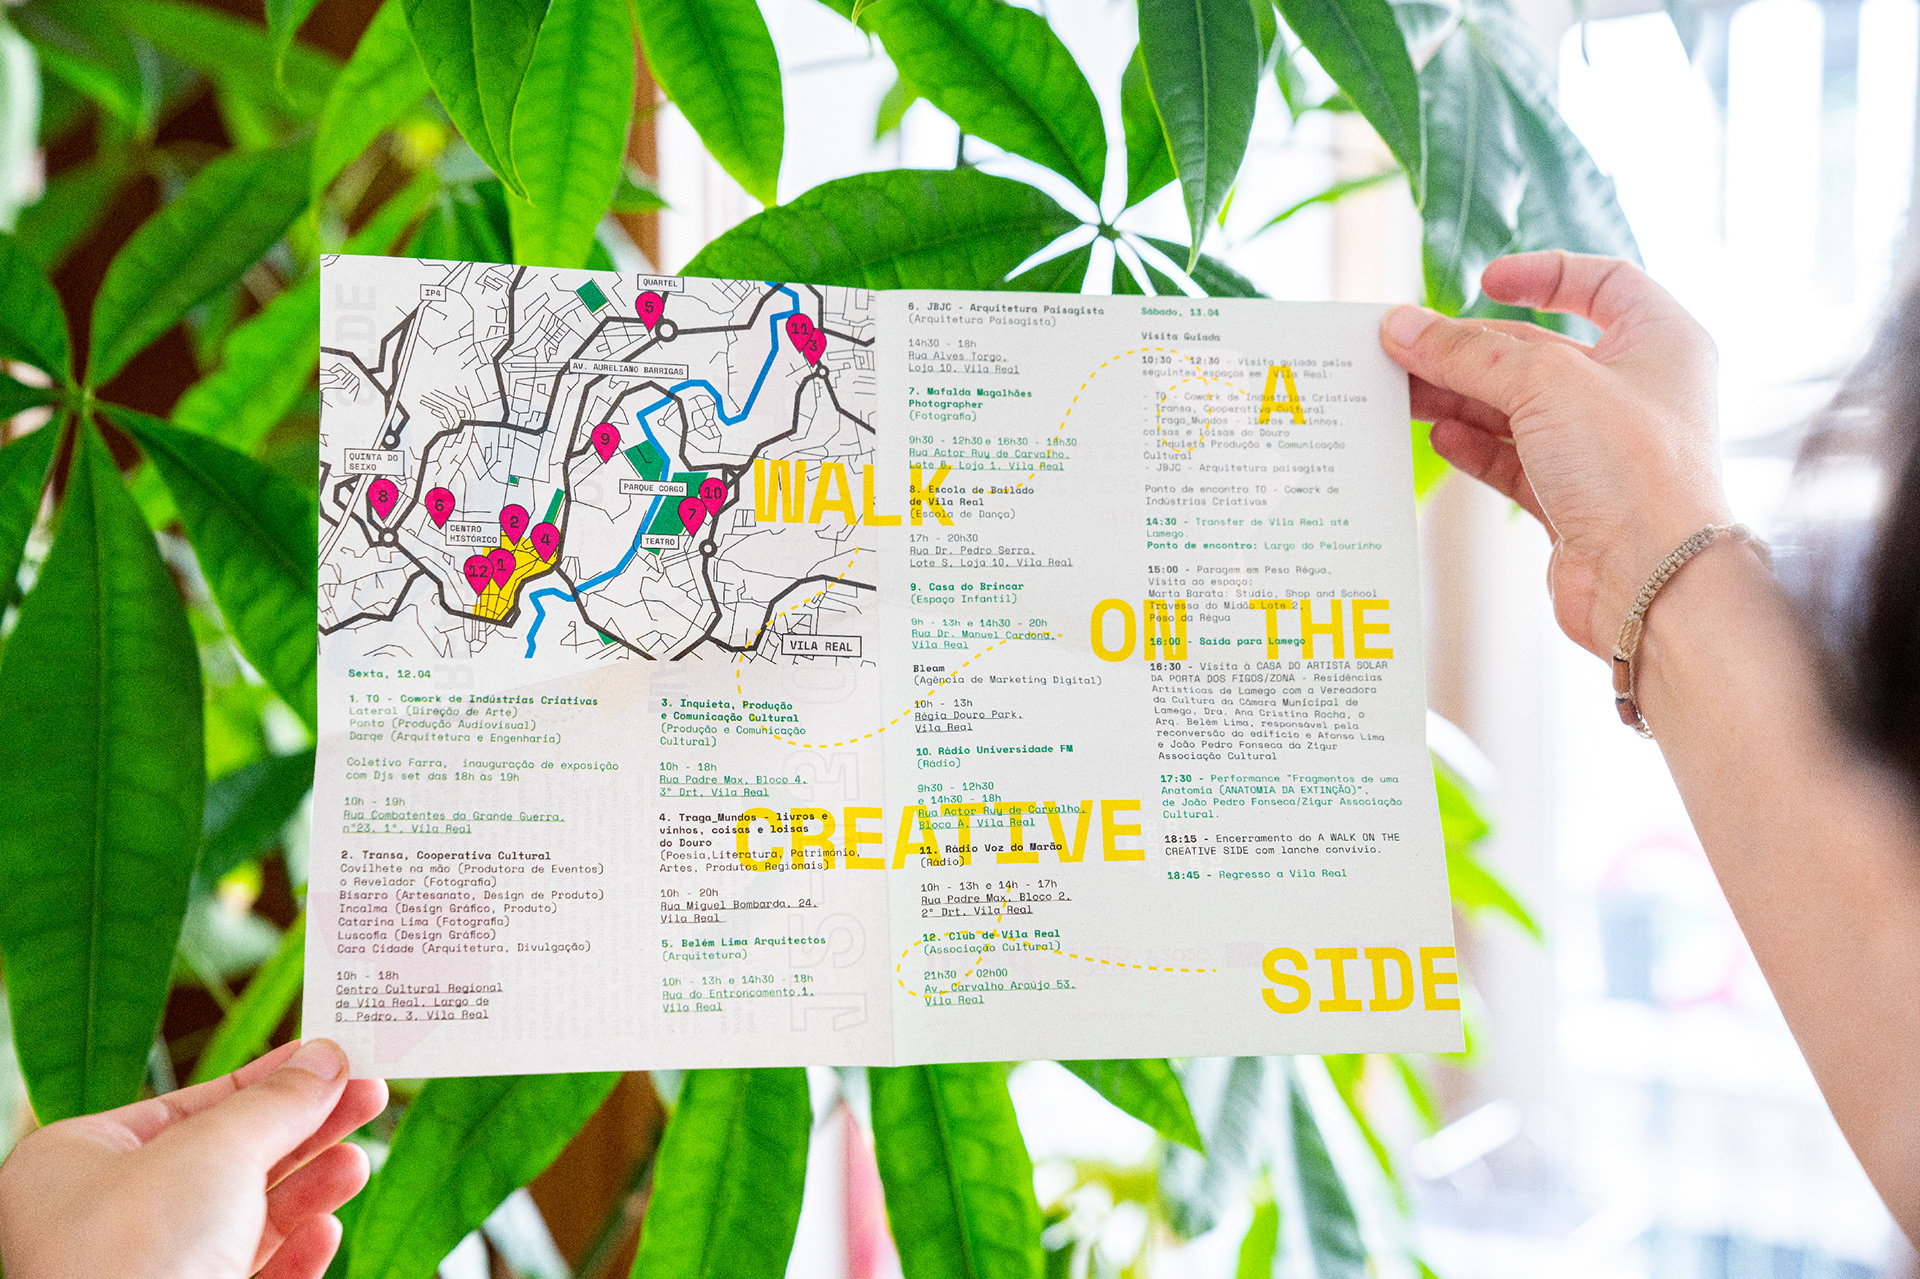 IP4
QUARTEL
5
11
3
AV. AURELIANO BARRIGAS
9
QUINTA DO
SEIXO
PARQUE CORGO
8
6
10
7
CENTRO
HISTÓRICO
2
4
TEATRO
12
1
VILA REAL
A
WALK
ON THE
CREATIVE
SIDE
Sexta, 12.04
1. TO - Cowork de Indústrias Criativas
Lateral (Direção de Arte)
Ponto (Produção Audiovisual)
Darqe (Arquitetura e Engenharia)
Coletivo Farra, inauguração de exposição
com Djs set das 18h às 19h
10h - 19h
Rua Combatentes da Grande Guerra,
nº23, 1º, Vila Real
2. Transa, Cooperativa Cultural
Covilhete na mão (Produtora de Eventos)
o Revelador (Fotografia)
Bisarro (Artesanato, Design de Produto)
Incalma (Design Gráfico, Produto)
Catarina Lima (Fotografia)
Luscofia (Design Gráfico)
Cara Cidade (Arquitetura, Divulgação)
10h - 18h
Centro Cultural Regional
de Vila Real, Largo de
S. Pedro, 3, Vila Real
3. Inquieta, Produção
e Comunicação Cultural
(Produção e Comunicação
Cultural)
10h - 18h
Rua Padre Max, Bloco 4,
3º Drt, Vila Real
4. Traga_Mundos - livros e
vinhos, coisas e loisas
do Douro
(Poesia,Literatura, Património,
Artes, Produtos Regionais)
10h - 20h
Rua Miguel Bombarda, 24,
Vila Real
5. Belém Lima Arquitectos
(Arquitetura)
10h - 13h e 14h30 - 18h
Rua do Entroncamento,1,
Vila Real
6. JBJC - Arquitetura Paisagista
(Arquitetura Paisagista)
14h30 - 18h
Rua Alves Torgo,
Loja 10, Vila Real
7. Mafalda Magalhães
Photographer
(Fotografia)
9h30 - 12h30 e 16h30 - 18h30
Rua Actor Ruy de Carvalho,
Lote 6, Loja 1, Vila Real
8. Escola de Bailado
de Vila Real
(Escola de Dança)
17h - 20h30
Rua Dr. Pedro Serra,
Lote S, Loja 10, Vila Real
9. Casa do Brincar
(Espaço Infantil)
9h - 13h e 14h30 - 20h
Rua Dr. Manuel Cardona,
Vila Real
Bleam
(Agência de Marketing Digital)
10h - 13h
Régia Douro Park,
Vila Real
10. Rádio Universidade FM
(Rádio)
9h30 - 12h30
e 14h30 - 18h
Rua Actor Ruy de Carvalho,
Bloco A, Vila Real
11. Rádio Voz do Marão
(Rádio)
10h - 13h e 14h - 17h
Rua Padre Max, Bloco 2,
2º Drt, Vila Real
12. Club de Vila Real
(Associação Cultural)
21h30 - 02h00
Av. Carvalho Araújo 53,
Vila Real
Sábado, 13.04
Visita Guiada
10:30 - 12:30 - Visita guiada pelos
seguintes espaços em Vila Real:
- TO - Cowork de Indústrias Criativas
- Transa, Cooperativa Cultural
- Traga_Mundos - livros e vinhos,
coisas e loisas do Douro
- Inquieta Produção e Comunicação
Cultural
- JBJC - Arquitetura paisagista
Ponto de encontro TO - Cowork de
Indústrias Criativas
14:30 - Transfer de Vila Real até
Lamego.
Ponto de encontro: Largo do Pelourinho
15:00 - Paragem em Peso Régua,
Visita ao espaço:
Marta Barata: Studio, Shop and School
Travessa do Midão Lote 2,
Peso da Régua
16:00 - Saída para Lamego
16:30 - Visita à CASA DO ARTISTA SOLAR
DA PORTA DOS FIGOS/ZONA - Residências
Artísticas de Lamego com a Vereadora
da Cultura da Câmara Municipal de
Lamego, Dra. Ana Cristina Rocha, o
Arq. Belém Lima, responsável pela
reconversão do edifício e Afonso Lima
e João Pedro Fonseca da Zigur
Associação Cultural
17:30 - Performance "Fragmentos de uma
Anatomia (ANATOMIA DA EXTINÇÃO)",
de João Pedro Fonseca/Zigur Associação
Cultural.
18:15 - Encerramento do A WALK ON THE
CREATIVE SIDE com lanche convívio.
18:45 - Regresso a Vila Real